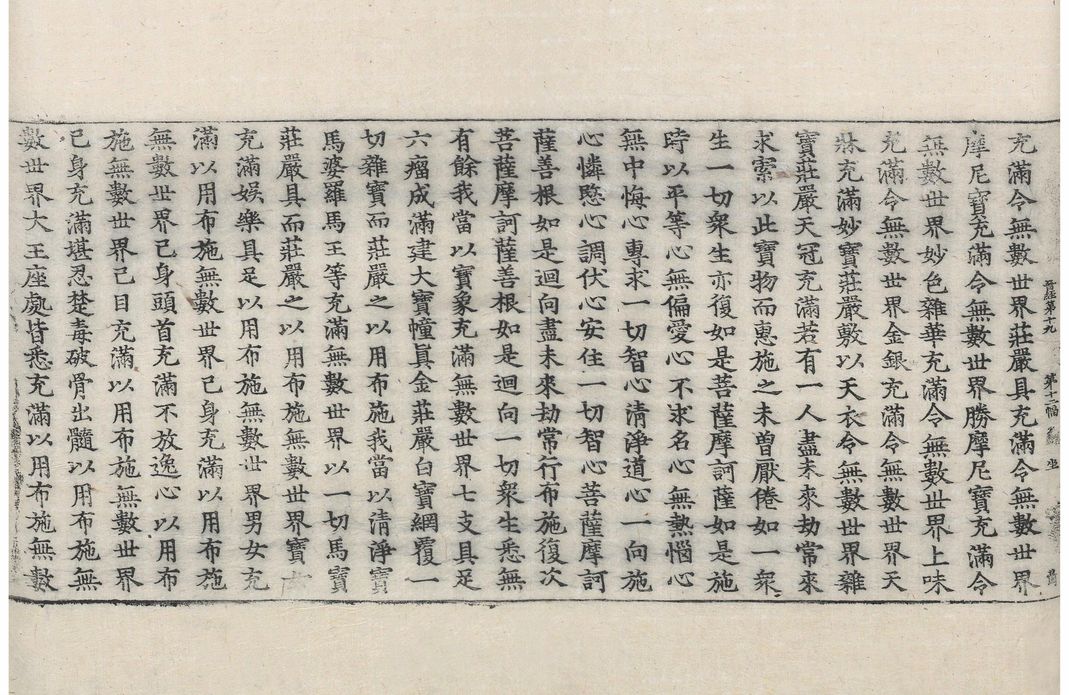 晉經第十九 第十二幅 坐
充滿令無數世界莊嚴具充滿令無數世界
摩尼寶充滿令無數世界勝摩尼寶充滿令
無數世界妙色雜華充滿令無數世界上味
充滿令無數世界金銀充滿令無數世界天
牀充滿妙寶莊嚴敷以天衣令無數世界雜
寶莊嚴天冠充滿若有一人盡未來劫常來
求索以此寶物而惠施之未曽厭倦如一衆
生一切衆生亦復如是菩薩摩訶薩如是施
時以平等心無偏愛心不求名心無熱惱心
無中悔心專求一切智心清淨道心一向施
心憐愍心調伏心安住一切智心菩薩摩訶
薩善根如是迴向盡未來劫常行布施復次
菩薩摩訶薩善根如是迴向一切衆生悉無
有餘我當以寶象充滿無數世界七支具足
六瘤成滿建大寶幢真金莊嚴白寶網覆一
切雜寶而莊嚴之以用布施我當以清淨寶
馬婆羅馬王等充滿無數世界以一切馬寶
莊嚴具而莊嚴之以用布施無數世界寶
充滿娛樂具足以用布施無數世界男女充
滿以用布施無數世界己身充滿以用布施
無數世界己身頭首充滿不放逸心以用布
施無數世界己目充滿以用布施無數世界
己身充滿堪忍楚毒破骨出髓以用布施無
數世界大王座處皆悉充滿以用布施無數